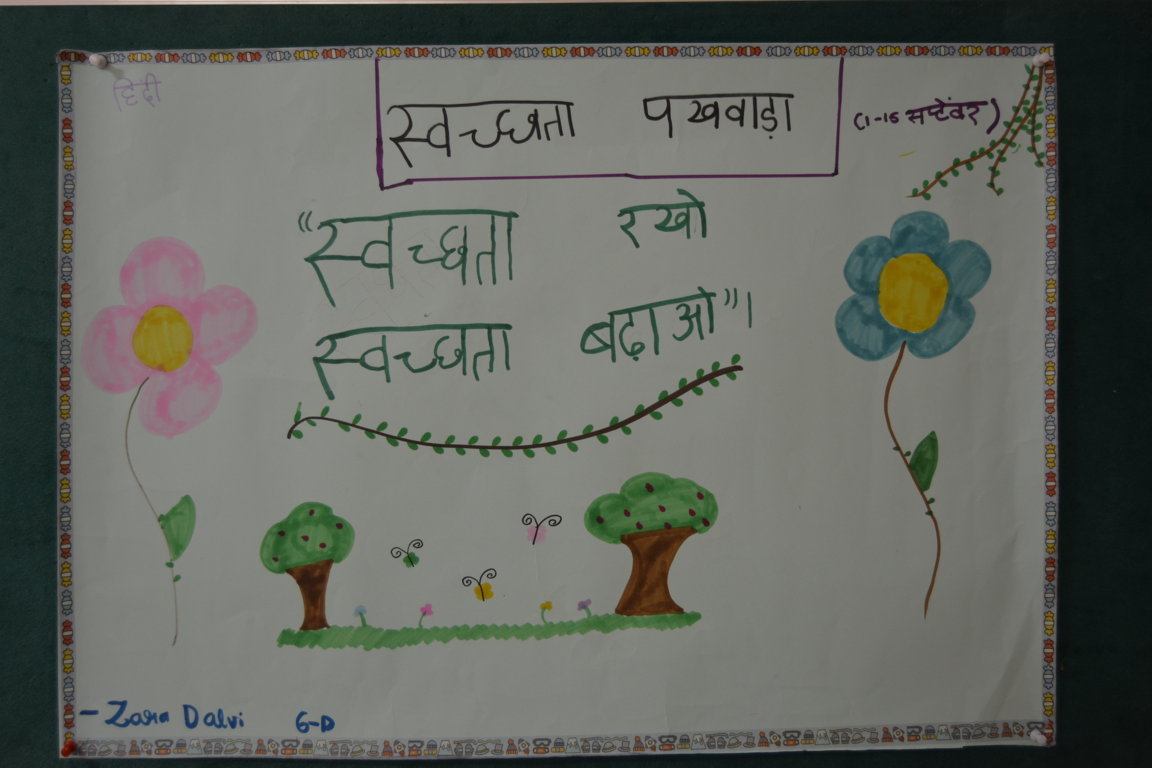 हिंदी
स्वच्छता पखवाड़ा (1-15 सप्टेंबर)
“स्वच्छता रखो
स्वच्छता बढ़ाओ”।
- Zara Dalvi 6-D